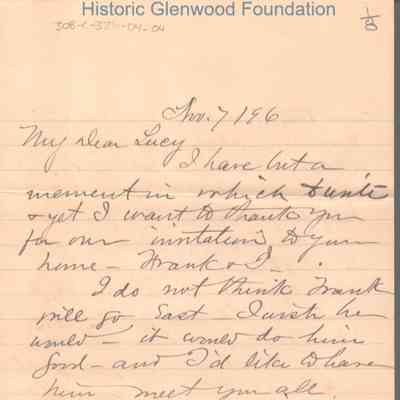 Historic Glenwood Foundation
1/8
Nov. 7 196
My Dear Lucy
I have but a
moment in which to write
& yet I want to thank you
for our invitation to your
home - Frank & I -
I do not think Frank
will go East - I wish he
would - it would do him
good - and I'd like to have
him meet you all.